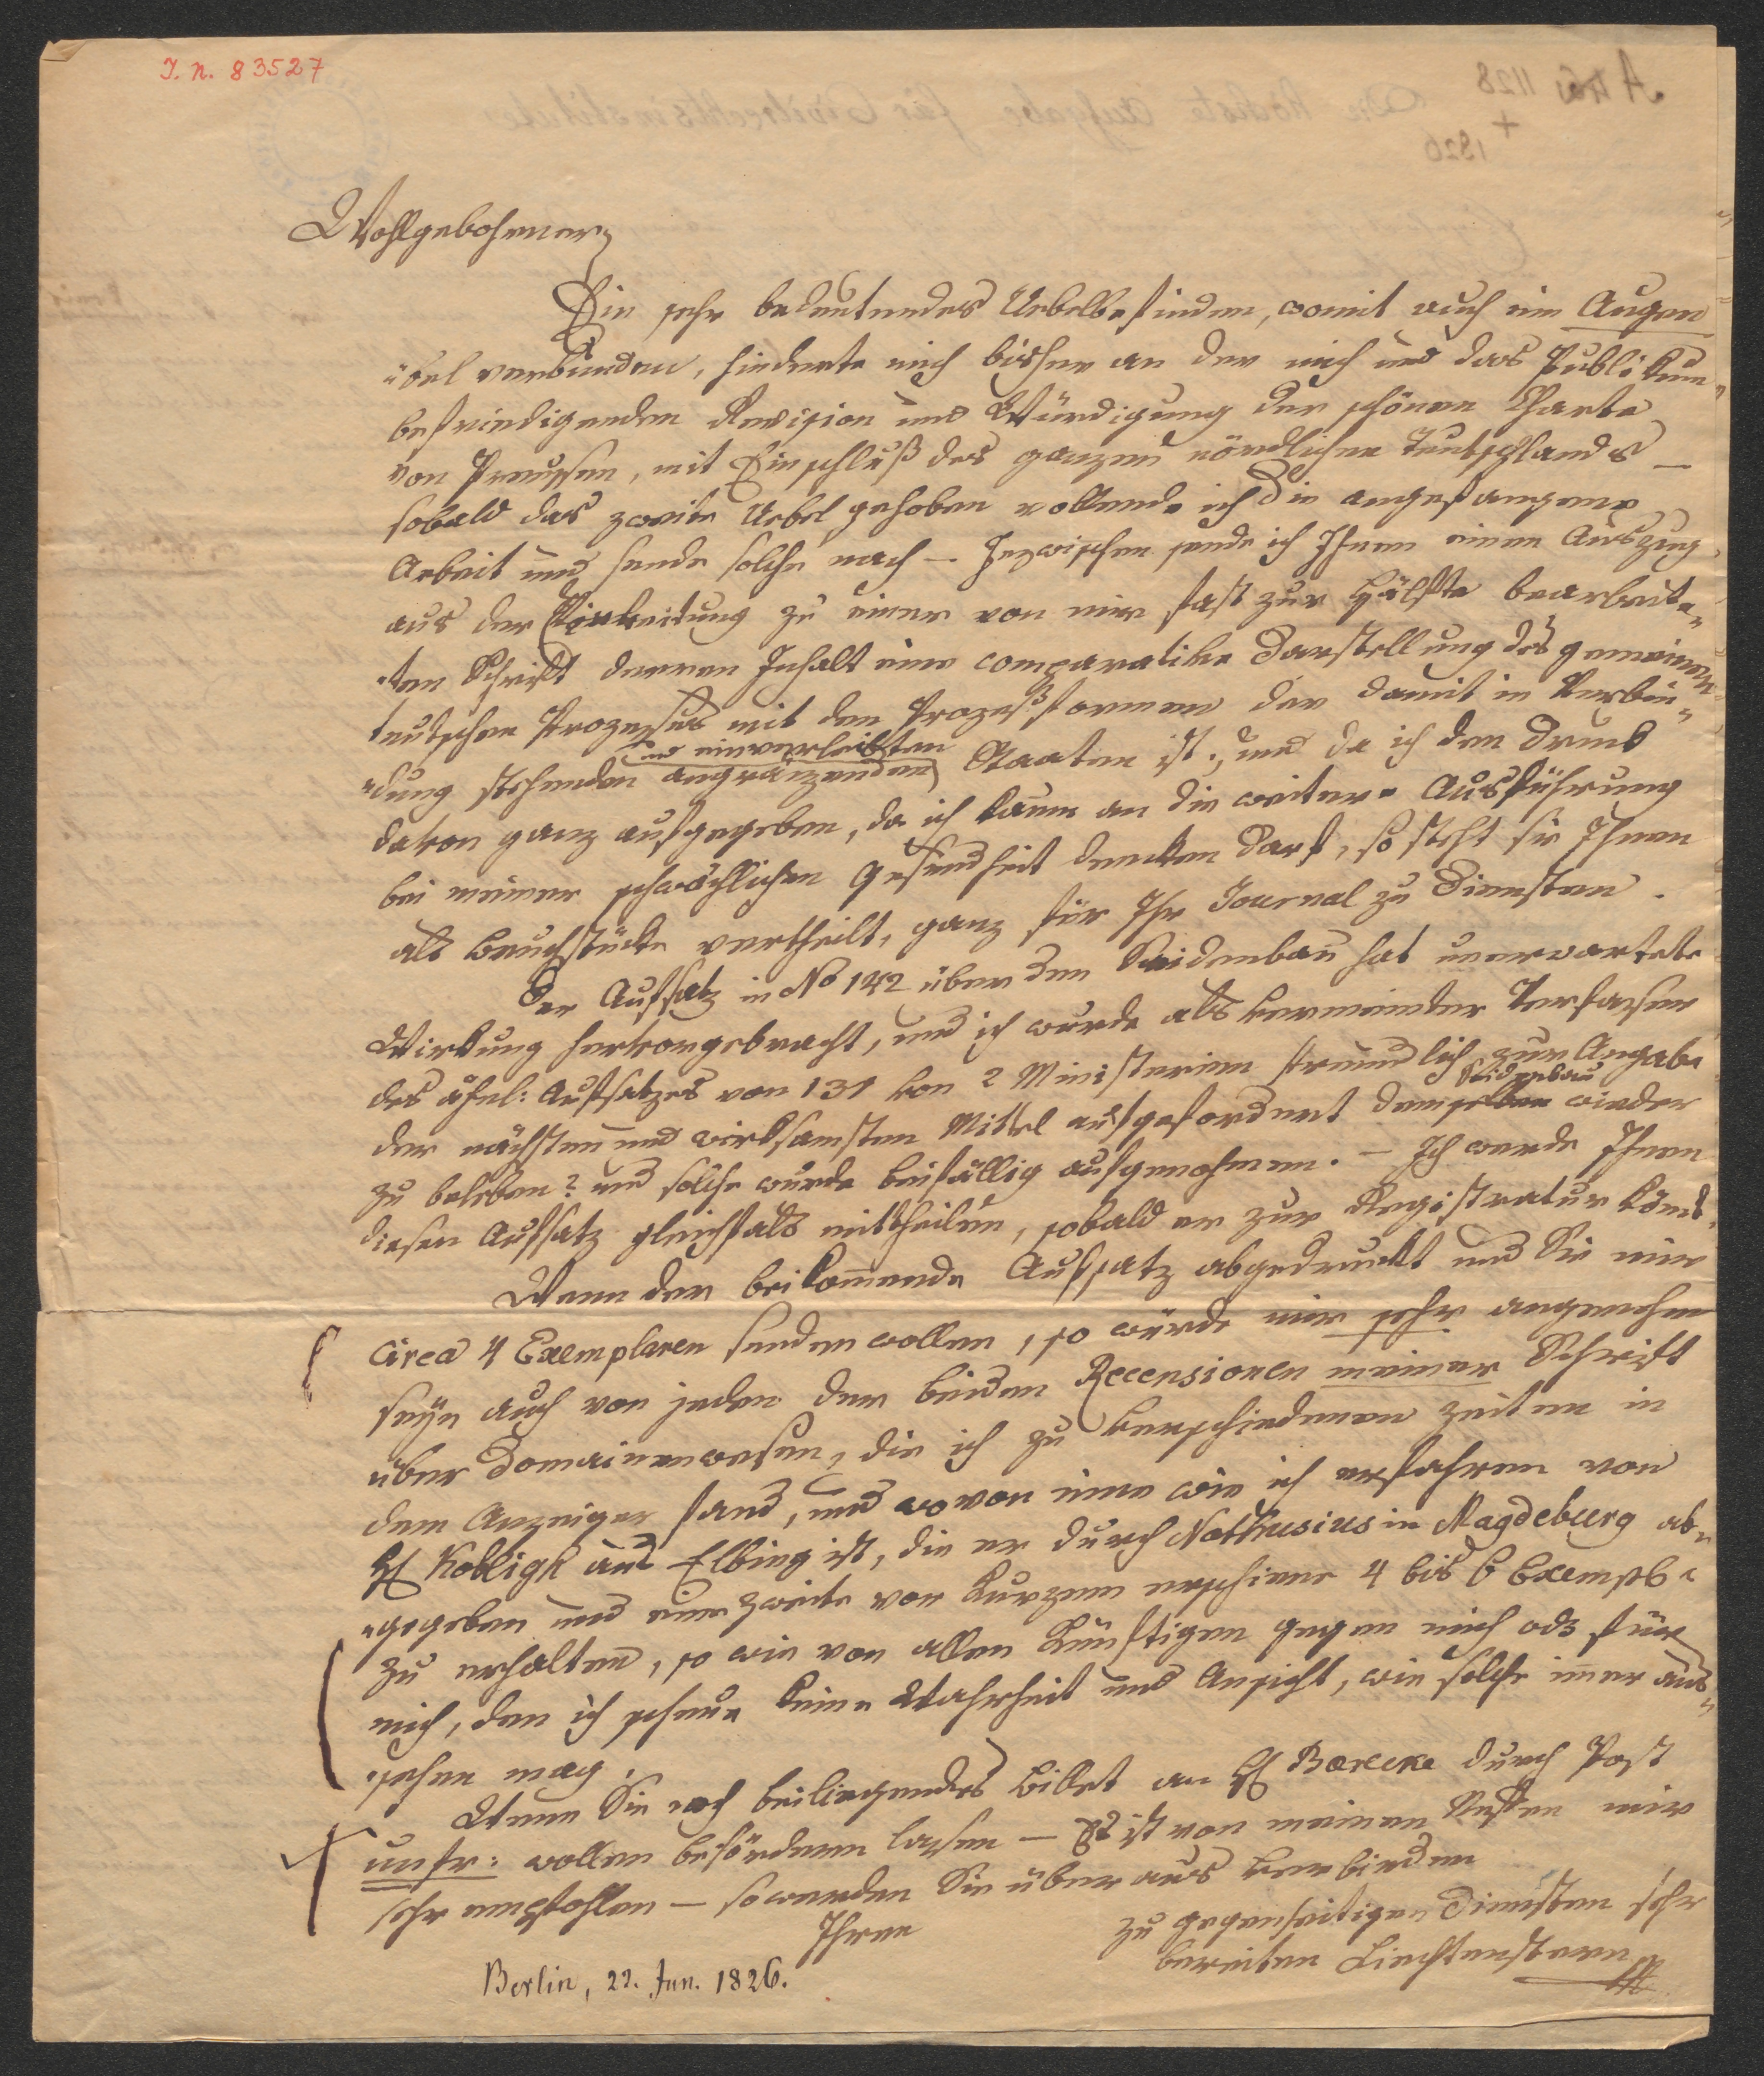 I. N. 83527
Wohlgebohrner,
Ein sehr bedeutendes Uebelbefinden, womit auch ein Augen
übel verbunden, hinderte mich bisher an der mich und das Publikum
befriedigenden Revision und Würdigung der schönen Charte
von Preussen, mit Einschluß des ganzen nördlichen Teutschlandes –
sobald das zweite Uebel gehoben vollende ich die angefangene
Arbeit und sende solche nach – Inzwischen sende ich Ihnen einen Auszug
aus der Einleitung zu einer von mir fast zur Hälfte bearbeite-
ten Schrift deren Inhalt eine comparative Darstellung des gemeinen
teutschen Prozesses mit den Prozeßformen der damit in Verbin-
und einverleibten
dung stehenden angränzenden Staaten ist, und da ich den Druck
davon ganz aufgegeben, da ich kaum an die weitere Ausführung
bei meiner schwächlichen Gesundheit dencken darf, so steht sie Ihnen
als Bruchstücke vertheilt, ganz für Ihr Journal zu Diensten.
Der Aufsatz in No 142 über den Seidenbau hat unerwartete
Wirkung hervorgebracht, und ich wurde als vermeinter Verfasser
des ähnl: Aufsatzes von 131 von 2 Ministerien freundlich zur Angabe
Seidenbau
der nächsten und wirksamsten Mittel aufgefordert denselben wieder
zu beleben? und solche wurde beifällig aufgenohmen. – Ich werde Ihnen
diesen Aufsatz gleichfals mittheilen, sobald er zur Registratur kömt.
Wenn der beikommende Aufsatz abgedruckt und Sie mir
circa 4 Exemplaren senden wollen, so würde mir sehr angenehm
seyn auch von jeden der beiden Recensionen meiner Schrift
über Domainenwesen, die ich zu verschiedenen Zeiten in
dem Anzeiger fand, und wovon eine wie ich erfahren von
H Kobligk aus Elbing ist, die er durch Nathusius in Magdeburg ab-
gegeben und eine zweite vor kurzem erschiene 4 bis 6 Exempl
zu erhalten, so wie von allen künftigen gegen mich od für
mich, den ich scheue keine Wahrheit und Ansicht, wie solche immer aus-
sehen mag.
Wenn Sie noch beiliegendes Billet an H durch Post
unfr: wollen befördern lassen – Es ist von meinem Neffen mir
sehr empfohlen – so werden Sie überaus verbinden
Ihren
zu gegenseitigen Diensten sehr
bereiten Liechtenstern
Berlin, 22. Jun. 1826.